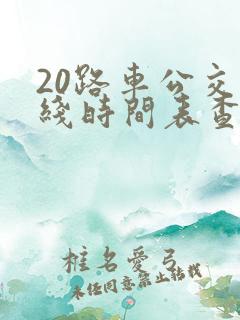 20路車公交
綫時間表查
椎名愛弓
未任同意禁止轉載